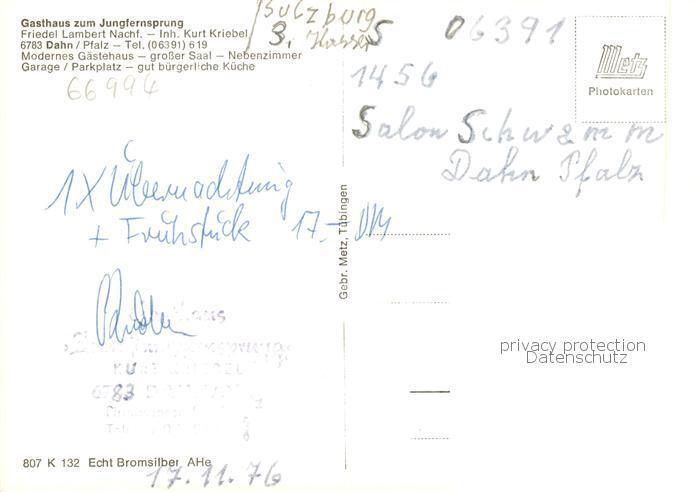 Gasthaus zum Jungfernsprung
Friedel Lambert Nachf. – Inh. Kurt Kriebel
6783 Dahn / Pfalz – Tel. (06391) 619
Modernes Gästehaus – großer Saal – Nebenzimmer
Garage / Parkplatz – gut bürgerliche Küche
66994
Sulzburg
S. Kasse
S 06391
1456
Salon Schwamm
Dahn Pfalz
Metz
Photokarten
1X Übernachtung
+ Frühstück 17.- DM
Gebr. Metz, Tübingen
KURT
6783
privacy protection
Datenschutz
807 K 132 Echt Bromsilber AHe
17.11.76